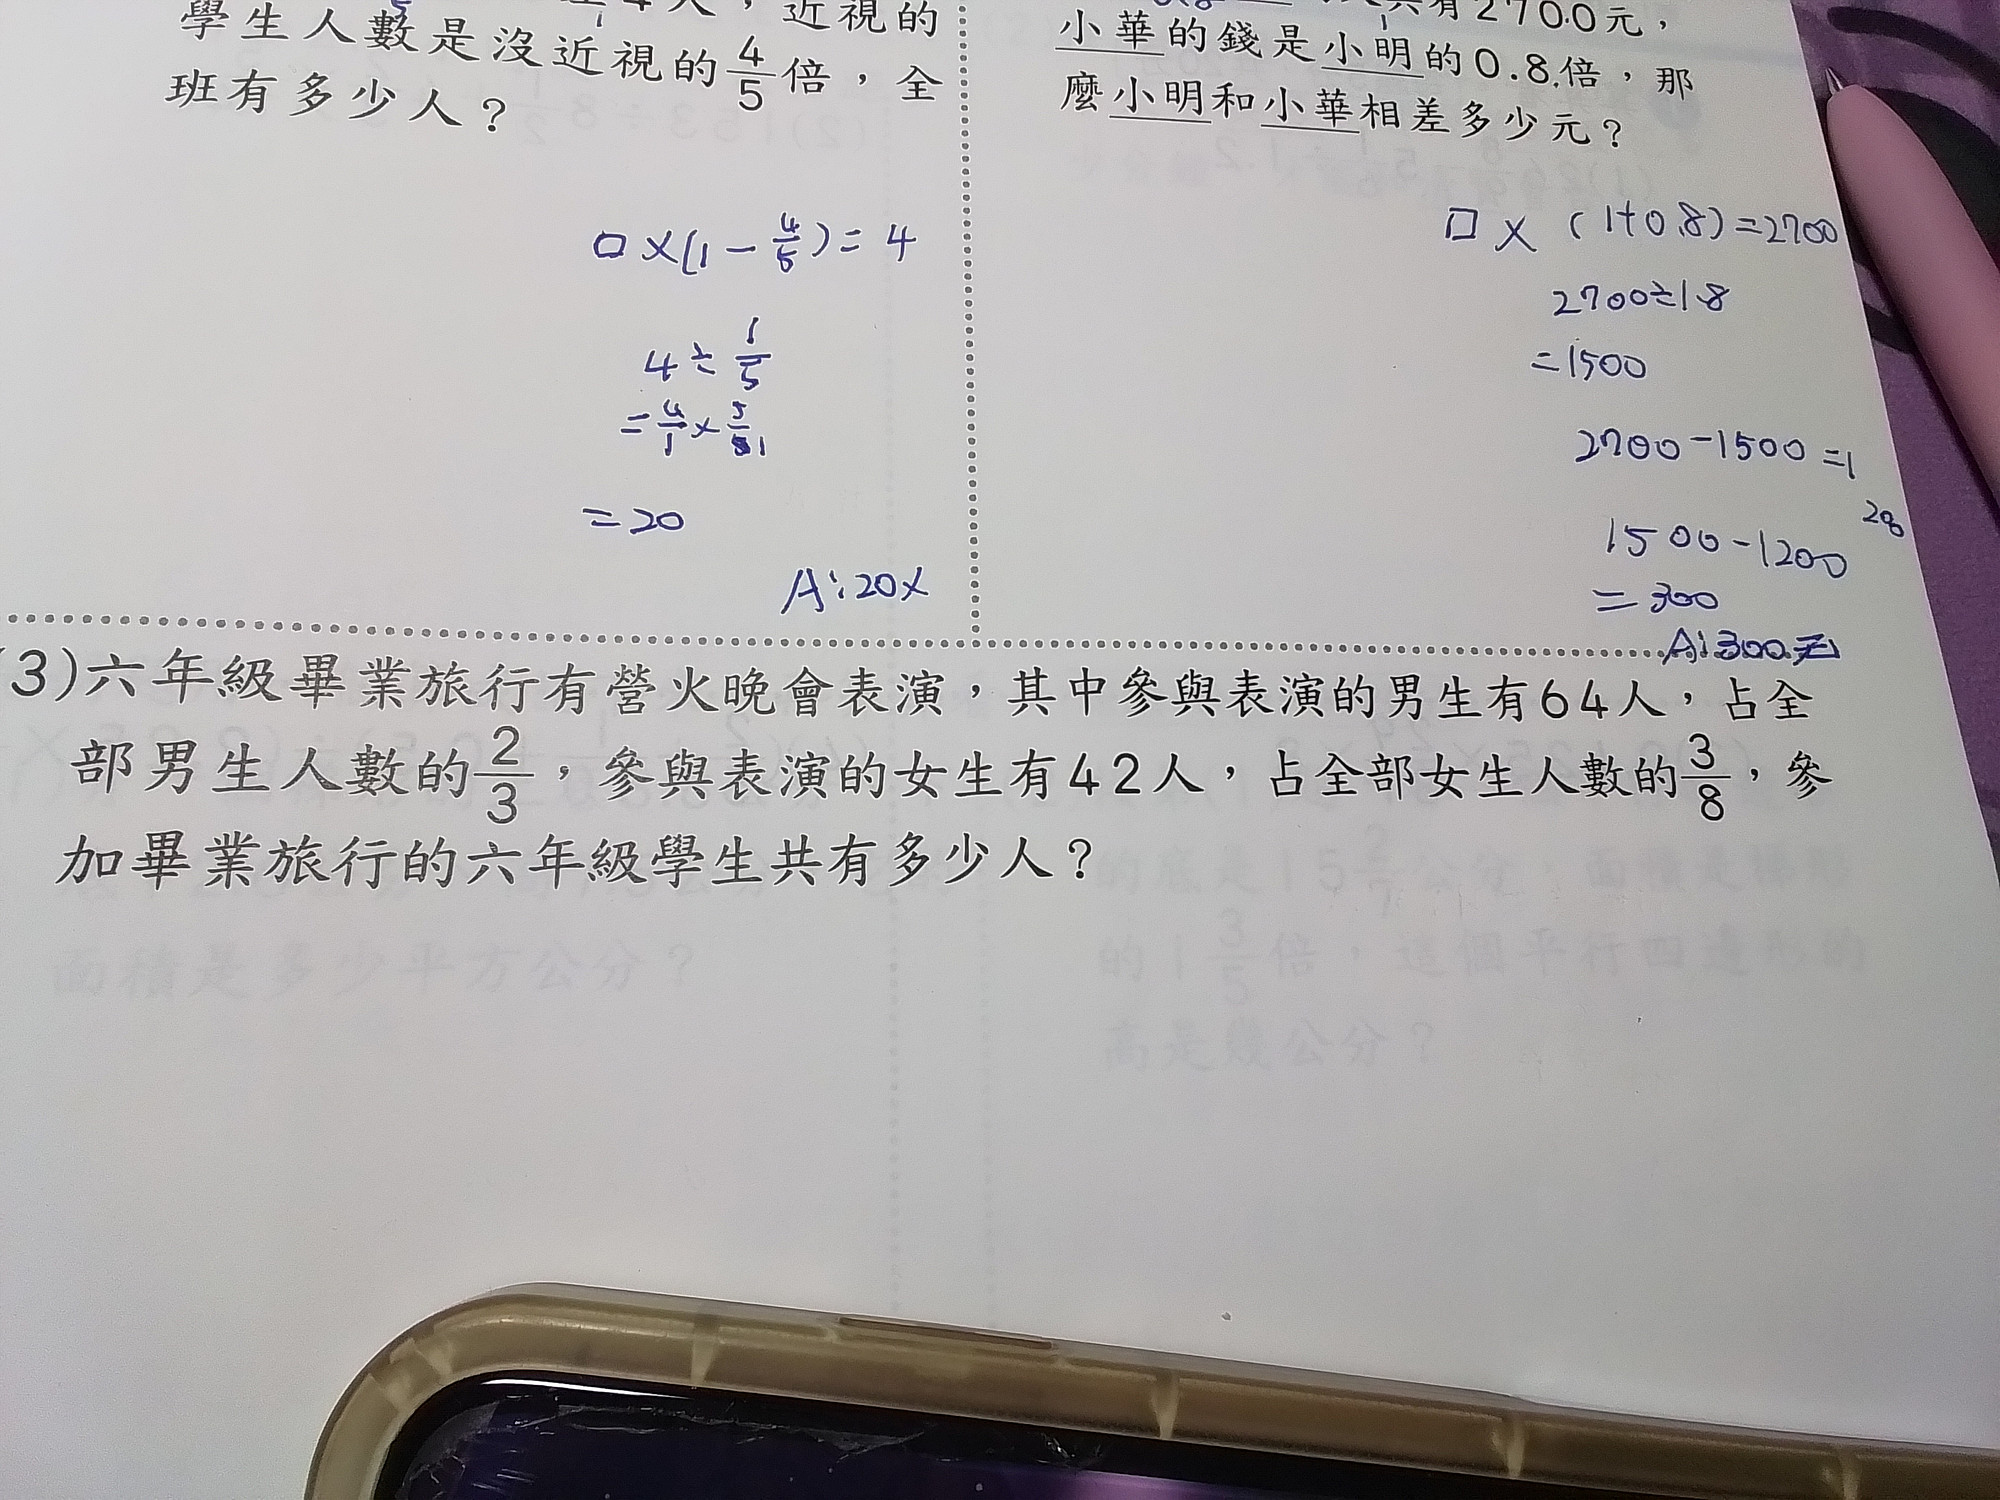 4人，近視的
學生人數是沒近視的4/5倍，全
班有多少人？
□×(1－4/5)＝4
4÷1/5
＝4/1×5/1
＝20
A：20人
共有2700元，
小華的錢是小明的0.8倍，那
麼小明和小華相差多少元？
□×(1+0.8)=2700
2700÷1.8
=1500
2700-1500=1200
1500-1200
=300
A：300元
(3)六年級畢業旅行有營火晚會表演，其中參與表演的男生有64人，占全
部男生人數的2/3，參與表演的女生有42人，占全部女生人數的3/8，參
加畢業旅行的六年級學生共有多少人？
面積是多少平方公分？
的1 3/5倍，這個平行四邊形的
高是幾公分？